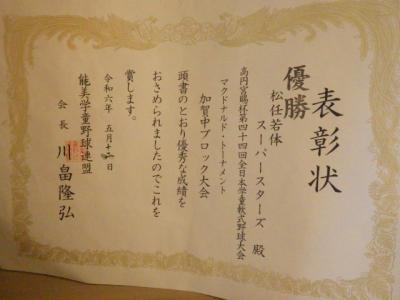 表彰状
優勝
松任若体
スーパースターズ 殿
高円宮賜杯第四十四回全日本学童軟式野球大会
マクドナルド・トーナメント
加賀中ブロック大会
頭書のとおり優秀な成績を
おさめられましたのでこれを
賞します。
令和六年 五月十二日
能美学童野球連盟
会長 川畠隆弘